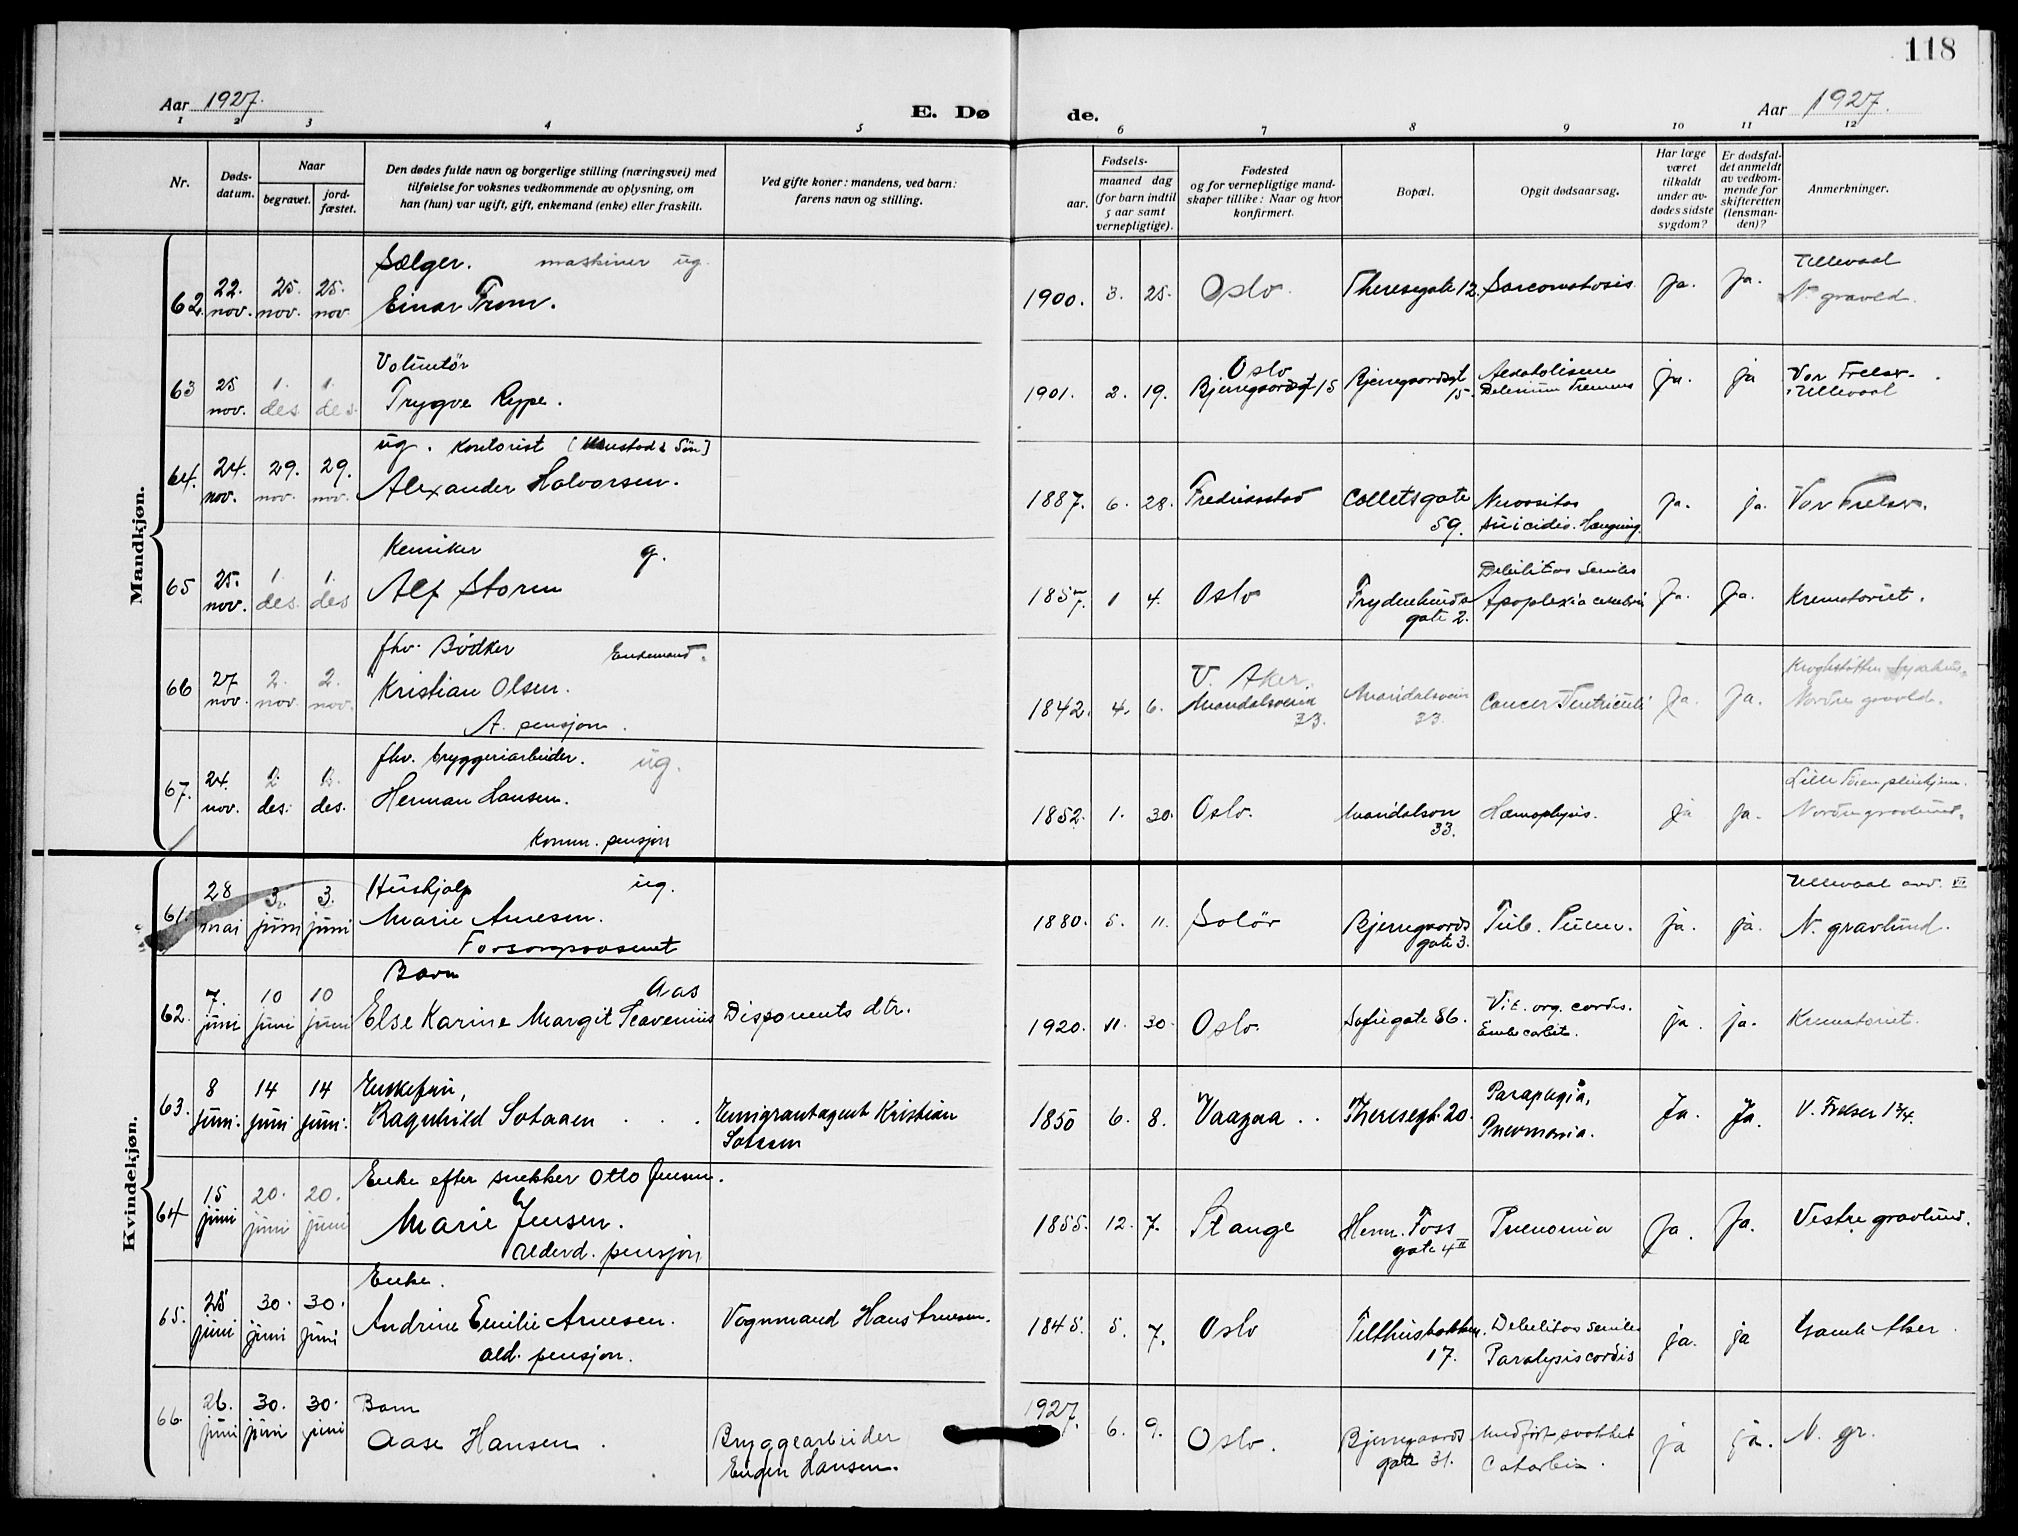 118
Aar 1927.
E. Døde.
Aar 1927.
1 2 3 4 5 6 7 8 9 10 11 12
Nr.
Døds-
datum.
Naar
begravet.
jord-
fæstet.
Den dødes fulde navn og borgerlige stilling (næringsvei) med
tilføielse for voksnes vedkommende av oplysning, om
han (hun) var ugift, gift, enkemand (enke) eller fraskilt.
Ved gifte koner: mandens, ved barn:
farens navn og stilling.
Fødsels-
aar.
maaned dag
(for barn indtil
5 aar samt
vernepligtige).
Fødested
og for vernepligtige mand-
skaper tillike: Naar og hvor
konfirmert.
Bopæl.
Opgit dødsaarsag.
Har læge
været
tilkaldt
under av-
dødes sidste
sygdom?
Er dødsfal-
det anmeldt
av vedkom-
mende for
skifteretten
(lensman-
den)?
Anmerkninger.
Mandkjøn.
Sælger. maskiner ug.
62. 22. nov. 25. nov. 25. nov. Einar From. 1900. 3. 25. Oslo. Theresegate 12. Sarcomatosis ja. ja. Ullevaal
N. gravld.
Voluntør
63 25 nov. 1. des 1. des. Trygve Rype. 1901. 2. 19. Oslo
Bjerregaardsgt 15 Bjerregaardsgt 15. Delirium Tremens ja. ja Vor Frelser.
Ullevaal
ug. Kontorist
64. 24. nov. 29. nov. 29. nov. Alexander Halvorsen. 1887. 6. 28. Fredriksstad Colletsgate 59. suicidio. Hængning. ja. ja. Vor Frelser.
Kemiker g.
65 25. nov. 1. des. 1. des Alf Storm 1857. 1 4. Oslo Frydenlunds gate 2. Debilitas seniles
Apoplexia cerebri ja. ja. Krematoriet.
fhv. Bødker Enkemand.
66 27 nov. 2. nov 2. nov. Kristian Olsen. 1842. 4. 6. V. Aker.
Maridalsveien 33. Maridalsveien 33. Cancer Ventriculi ja. ja. Krohgstøtten Sykehus.
Nordre gravld.
A. pensjon.
fhv. bryggeriarbeider. ug.
67. 24. nov. 2. des. des. Herman Hansen. 1852. 1. 30. Oslo. 33. Hæmoptysis. ja ja. Lille Tøien pleiehjem.
Nordre gravlund.
Komm. pensjon
Kvindekjøn.
Hushjelp ug.
61. 28 mai 3. juni 3. juni Marie Arnesen. 1880. 5. 11. Solør Bjerregaards gate 3. Tub. Pulm. ja. ja. Ullevaal avd. VII
N. gravlund.
Forsorgsvæsenet
Barn
62. 7. juni 10 juni 10 juni Else Karine Margit Scavenius Aas Disponents dtr. 1920. 11. 30. Oslo. Sofiegate 86. Vit. org. cordis. ja. ja. Krematoriet.
Enkefru,
63. 8 juni. 14 juni 14 juni. Ragnhild Sotaaen Emigrantagent Kristian
Sotaaen 1850 6. 8. Vaagaa Theresegt. 20. Paraplegia,
Pneumonia. Ja. Ja. V. Frelser
Enke efter snekker Otto Jensen.
64 15 juni 20. juni 20. juni Marie Jensen. 1855. 12. 7. Stange Herm. Foss gate 4 II ja. ja. Vestre gravlund.
Alderd. pensjon
Enke.
65. 25 juni 30. juni 30. juni Andrine Emilie Arnesen. Vognmand Hans Arnesen. 1845. 5. 7. Oslo Telthusbakken 17. Debilitas seniles
Paralysis cordis ja. ja Gamle Aker.
ald. pensjon.
66. 26. juni 30. juni 30. juni Barn
Aase Hansen. Bryggearbeider
Eugen Hansen. 1927. 6. 9. Oslo. Bjerregaards gate 31. Medfødt svakhet ja ja. N. gr.